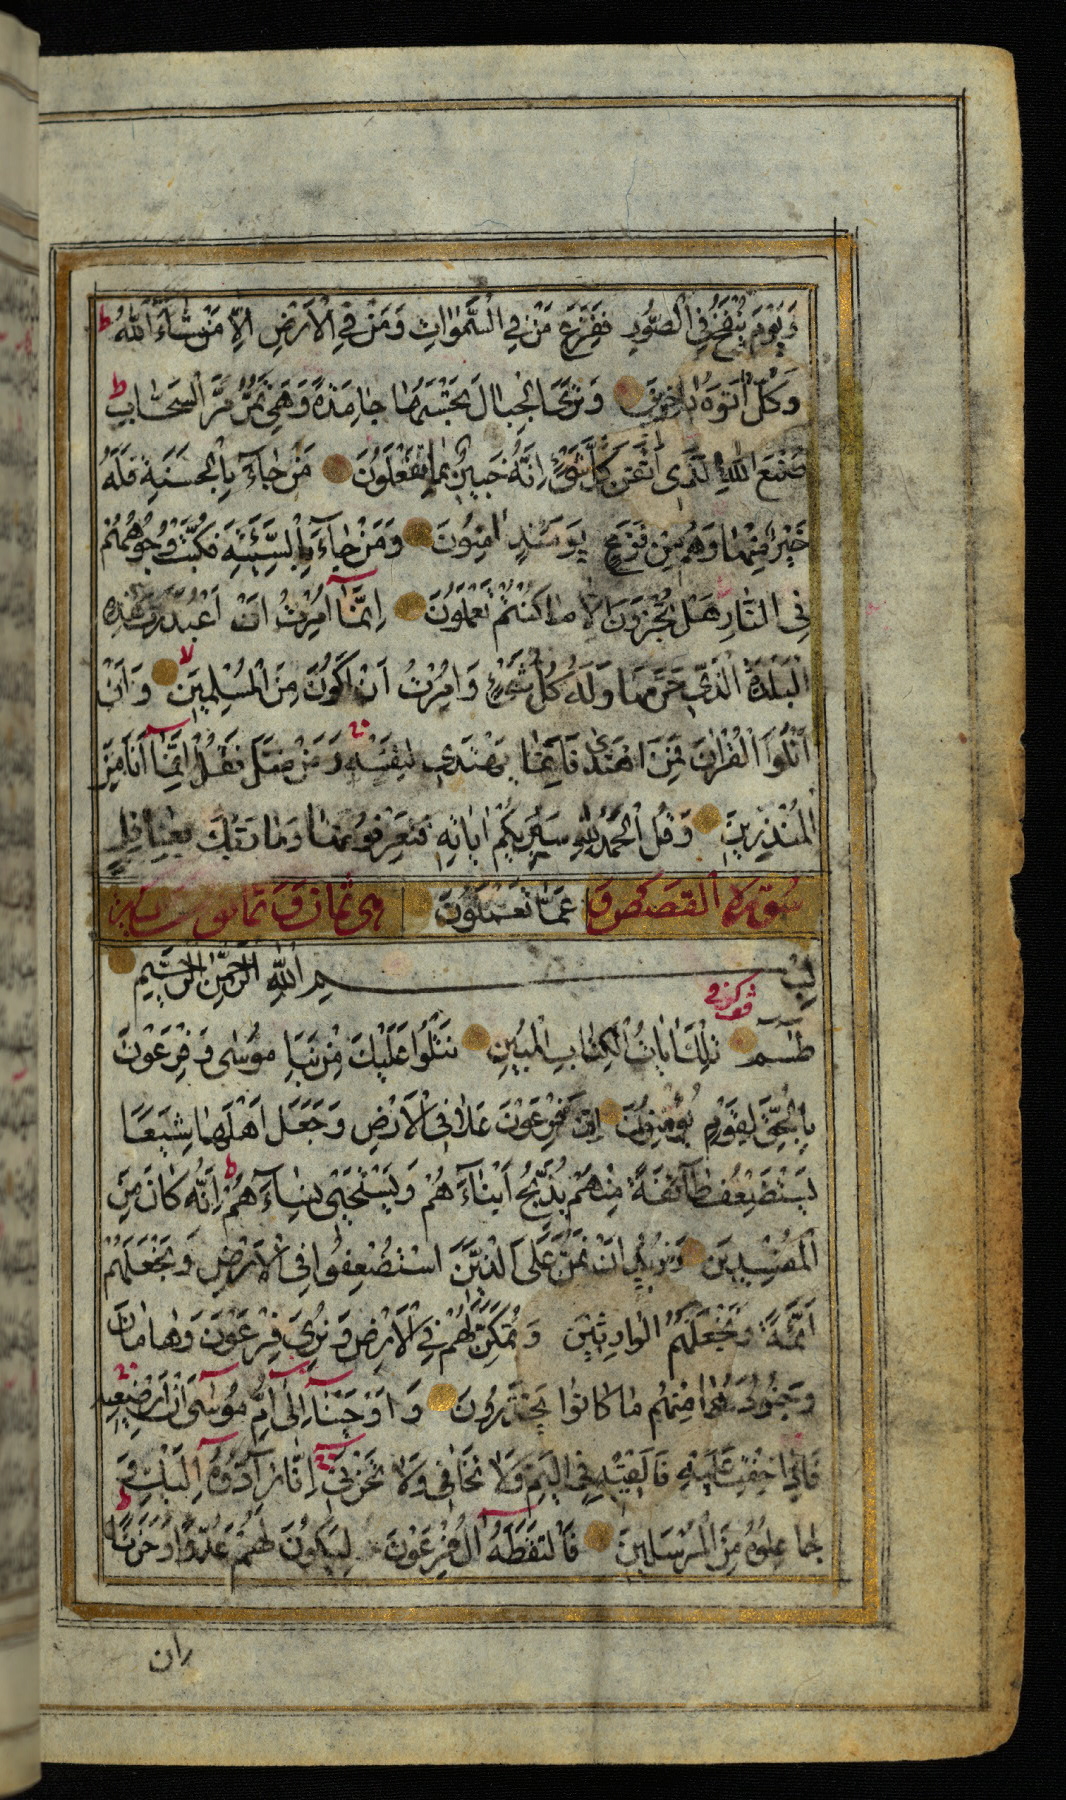 وَيَوْمَ يُنْفَخُ فِي الصُّورِ فَفَزِعَ مَنْ فِي السَّمٰوَاتِ وَمَنْ فِي الْاَرْضِ اِلَّا مَنْ شَآءَ اللّٰهُ ط
وَكُلٌّ اَتَوْهُ دَاخِرِينَ وَتَرَى الْجِبَالَ تَحْسَبُهَا جَامِدَةً وَهِيَ تَمُرُّ مَرَّ السَّحَابِ ط
صُنْعَ اللّٰهِ الَّذِي اَتْقَنَ كُلَّ شَيْءٍ اِنَّهُ خَبِيرٌ بِمَا تَفْعَلُونَ مَنْ جَآءَ بِالْحَسَنَةِ فَلَهُ
خَيْرٌ مِنْهَا وَهُمْ مِنْ فَزَعٍ يَوْمَئِذٍ اٰمِنُونَ وَمَنْ جَآءَ بِالسَّيِّئَةِ فَكُبَّتْ وُجُوهُهُمْ
فِي النَّارِ هَلْ تُجْزَوْنَ اِلَّا مَا كُنْتُمْ تَعْمَلُونَ اِنَّمَآ اُمِرْتُ اَنْ اَعْبُدَ رَبَّ هٰذِهِ
الْبَلْدَةِ الَّذِي حَرَّمَهَا وَلَهُ كُلُّ شَيْءٍ وَاُمِرْتُ اَنْ اَكُونَ مِنَ الْمُسْلِمِينَ لا وَاَنْ
اَتْلُوَا الْقُرْاٰنَ فَمَنِ اهْتَدٰى فَاِنَّمَا يَهْتَدِي لِنَفْسِهِ وَمَنْ ضَلَّ فَقُلْ اِنَّمَآ اَنَا مِنَ
الْمُنْذِرِينَ وَقُلِ الْحَمْدُ لِلّٰهِ سَيُرِيكُمْ اٰيَاتِهِ فَتَعْرِفُونَهَا وَمَا رَبُّكَ بِغَافِلٍ
سُورَةُ الْقَصَصِ عَمَّا تَعْمَلُونَ وَهِيَ ثَمَانٌ وَثَمَانُونَ
بِسْمِ اللّٰهِ الرَّحْمٰنِ الرَّحِيمِ
طٰسٓمٓ تِلْكَ اٰيَاتُ الْكِتَابِ الْمُبِينِ نَتْلُوا عَلَيْكَ مِنْ نَبَاِ مُوسٰى وَفِرْعَوْنَ
بِالْحَقِّ لِقَوْمٍ يُؤْمِنُونَ اِنَّ فِرْعَوْنَ عَلَا فِي الْاَرْضِ وَجَعَلَ اَهْلَهَا شِيَعًا
يَسْتَضْعِفُ طَآئِفَةً مِنْهُمْ يُذَبِّحُ اَبْنَآءَهُمْ وَيَسْتَحْيِي نِسَآءَهُمْ ط اِنَّهُ كَانَ مِنَ
الْمُفْسِدِينَ وَنُرِيدُ اَنْ نَمُنَّ عَلَى الَّذِينَ اسْتُضْعِفُوا فِي الْاَرْضِ وَنَجْعَلَهُمْ
اَئِمَّةً وَنَجْعَلَهُمُ الْوَارِثِينَ وَنُمَكِّنَ لَهُمْ فِي الْاَرْضِ وَنُرِيَ فِرْعَوْنَ وَهَامَانَ
وَجُنُودَهُمَا مِنْهُمْ مَا كَانُوا يَحْذَرُونَ وَاَوْحَيْنَآ اِلٰٓى اُمِّ مُوسٰٓى اَنْ اَرْضِعِيهِ
فَاِذَا خِفْتِ عَلَيْهِ فَاَلْقِيهِ فِي الْيَمِّ وَلَا تَخَافِي وَلَا تَحْزَنِي اِنَّا رَآدُّوهُ اِلَيْكِ وَ
جَاعِلُوهُ مِنَ الْمُرْسَلِينَ فَالْتَقَطَهُٓ اٰلُ فِرْعَوْنَ لِيَكُونَ لَهُمْ عَدُوًّا وَحَزَنًا ط
ان